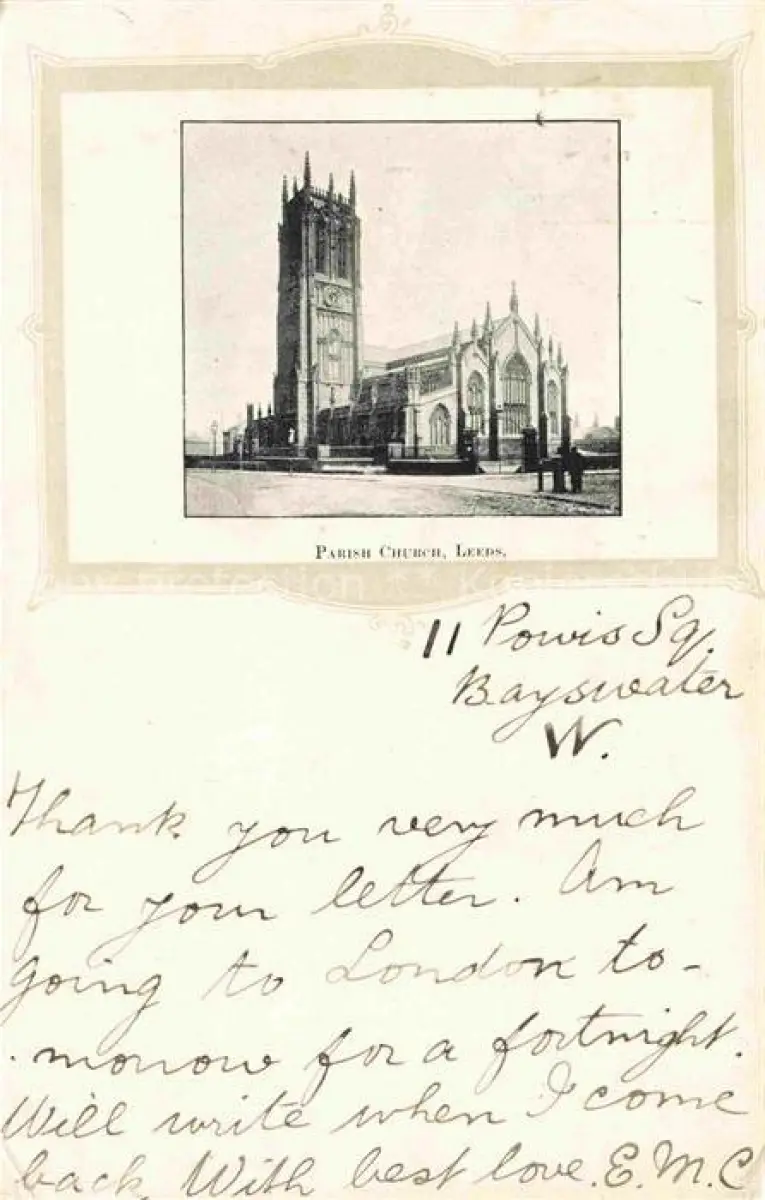 PARISH CHURCH, LEEDS.
11 Powis Sq.
Bayswater
W.
Thank you very much
for your letter. Am
going to London to-
morrow for a fortnight.
Will write when I come
back. With best love. E.M.C